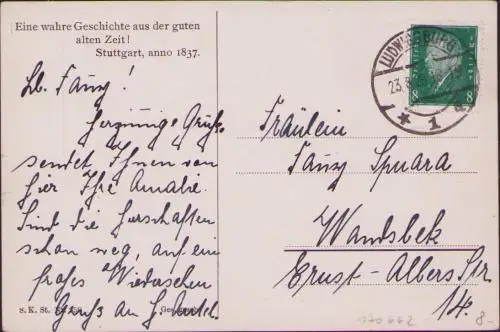 Eine wahre Geschichte aus der guten
alten Zeit!
Stuttgart, anno 1837.
Lb. Fanny!
herzinnige Grüße
sendet Ihnen von
hier Ihre Amalie.
Sind die Herschaften
schon weg, auf ein
frohes Wiedersehen
Gruß an
S. K. St.
LUDWIGSBURG
23.
1
8
8
Fräulein
Fanny Spuara
Wandsbek
Ernst-Albers Str.
14.
8-